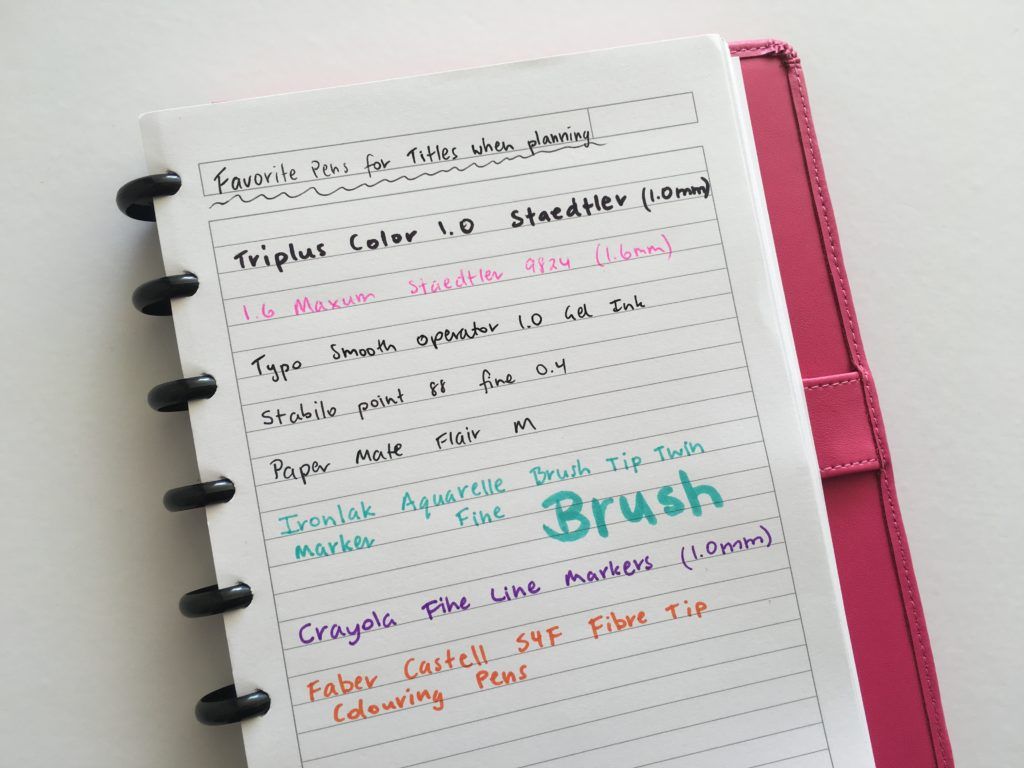 Favorite Pens for Titles when planning
Triplus Color 1.0 Staedtler (1.0mm)
1.6 Maxum Staedtler 9824 (1.6mm)
Typo Smooth operator 1.0 Gel Ink
Stabilo point 88 fine 0.4
Paper Mate Flair M
Ironlak Aquarelle Brush Tip Twin
Marker Fine Brush
Crayola Fine Line Markers (1.0mm)
Faber Castell S4F Fibre Tip
Colouring Pens